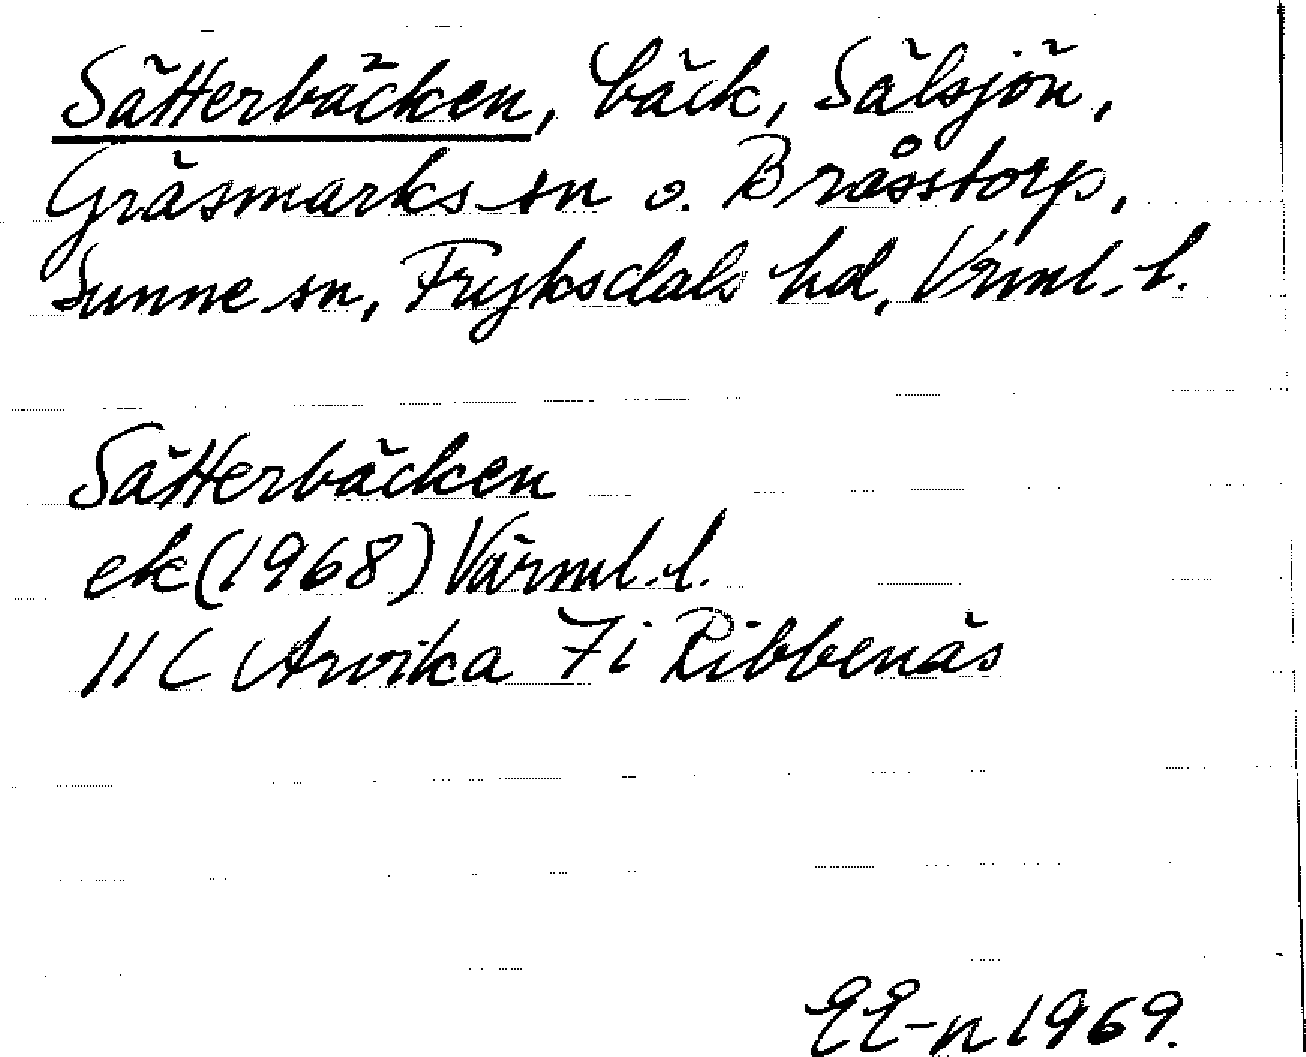 Sätterbäcken, bäck, Sälsjön,
Gräsmarks sn o. Bråsstorp,
Sunne sn, Fryksdals hd, Vrml. l.
Sätterbäcken
ek (1968) Värml. l.
11 C Arvika 7 i Ribbenäs
EE-n 1969.